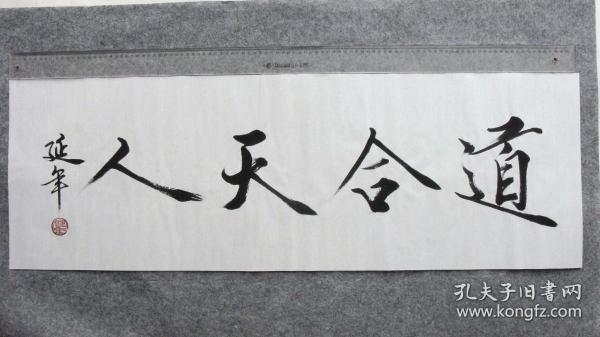 道合天人
延年
孔夫子旧書网
www.kongfz.com